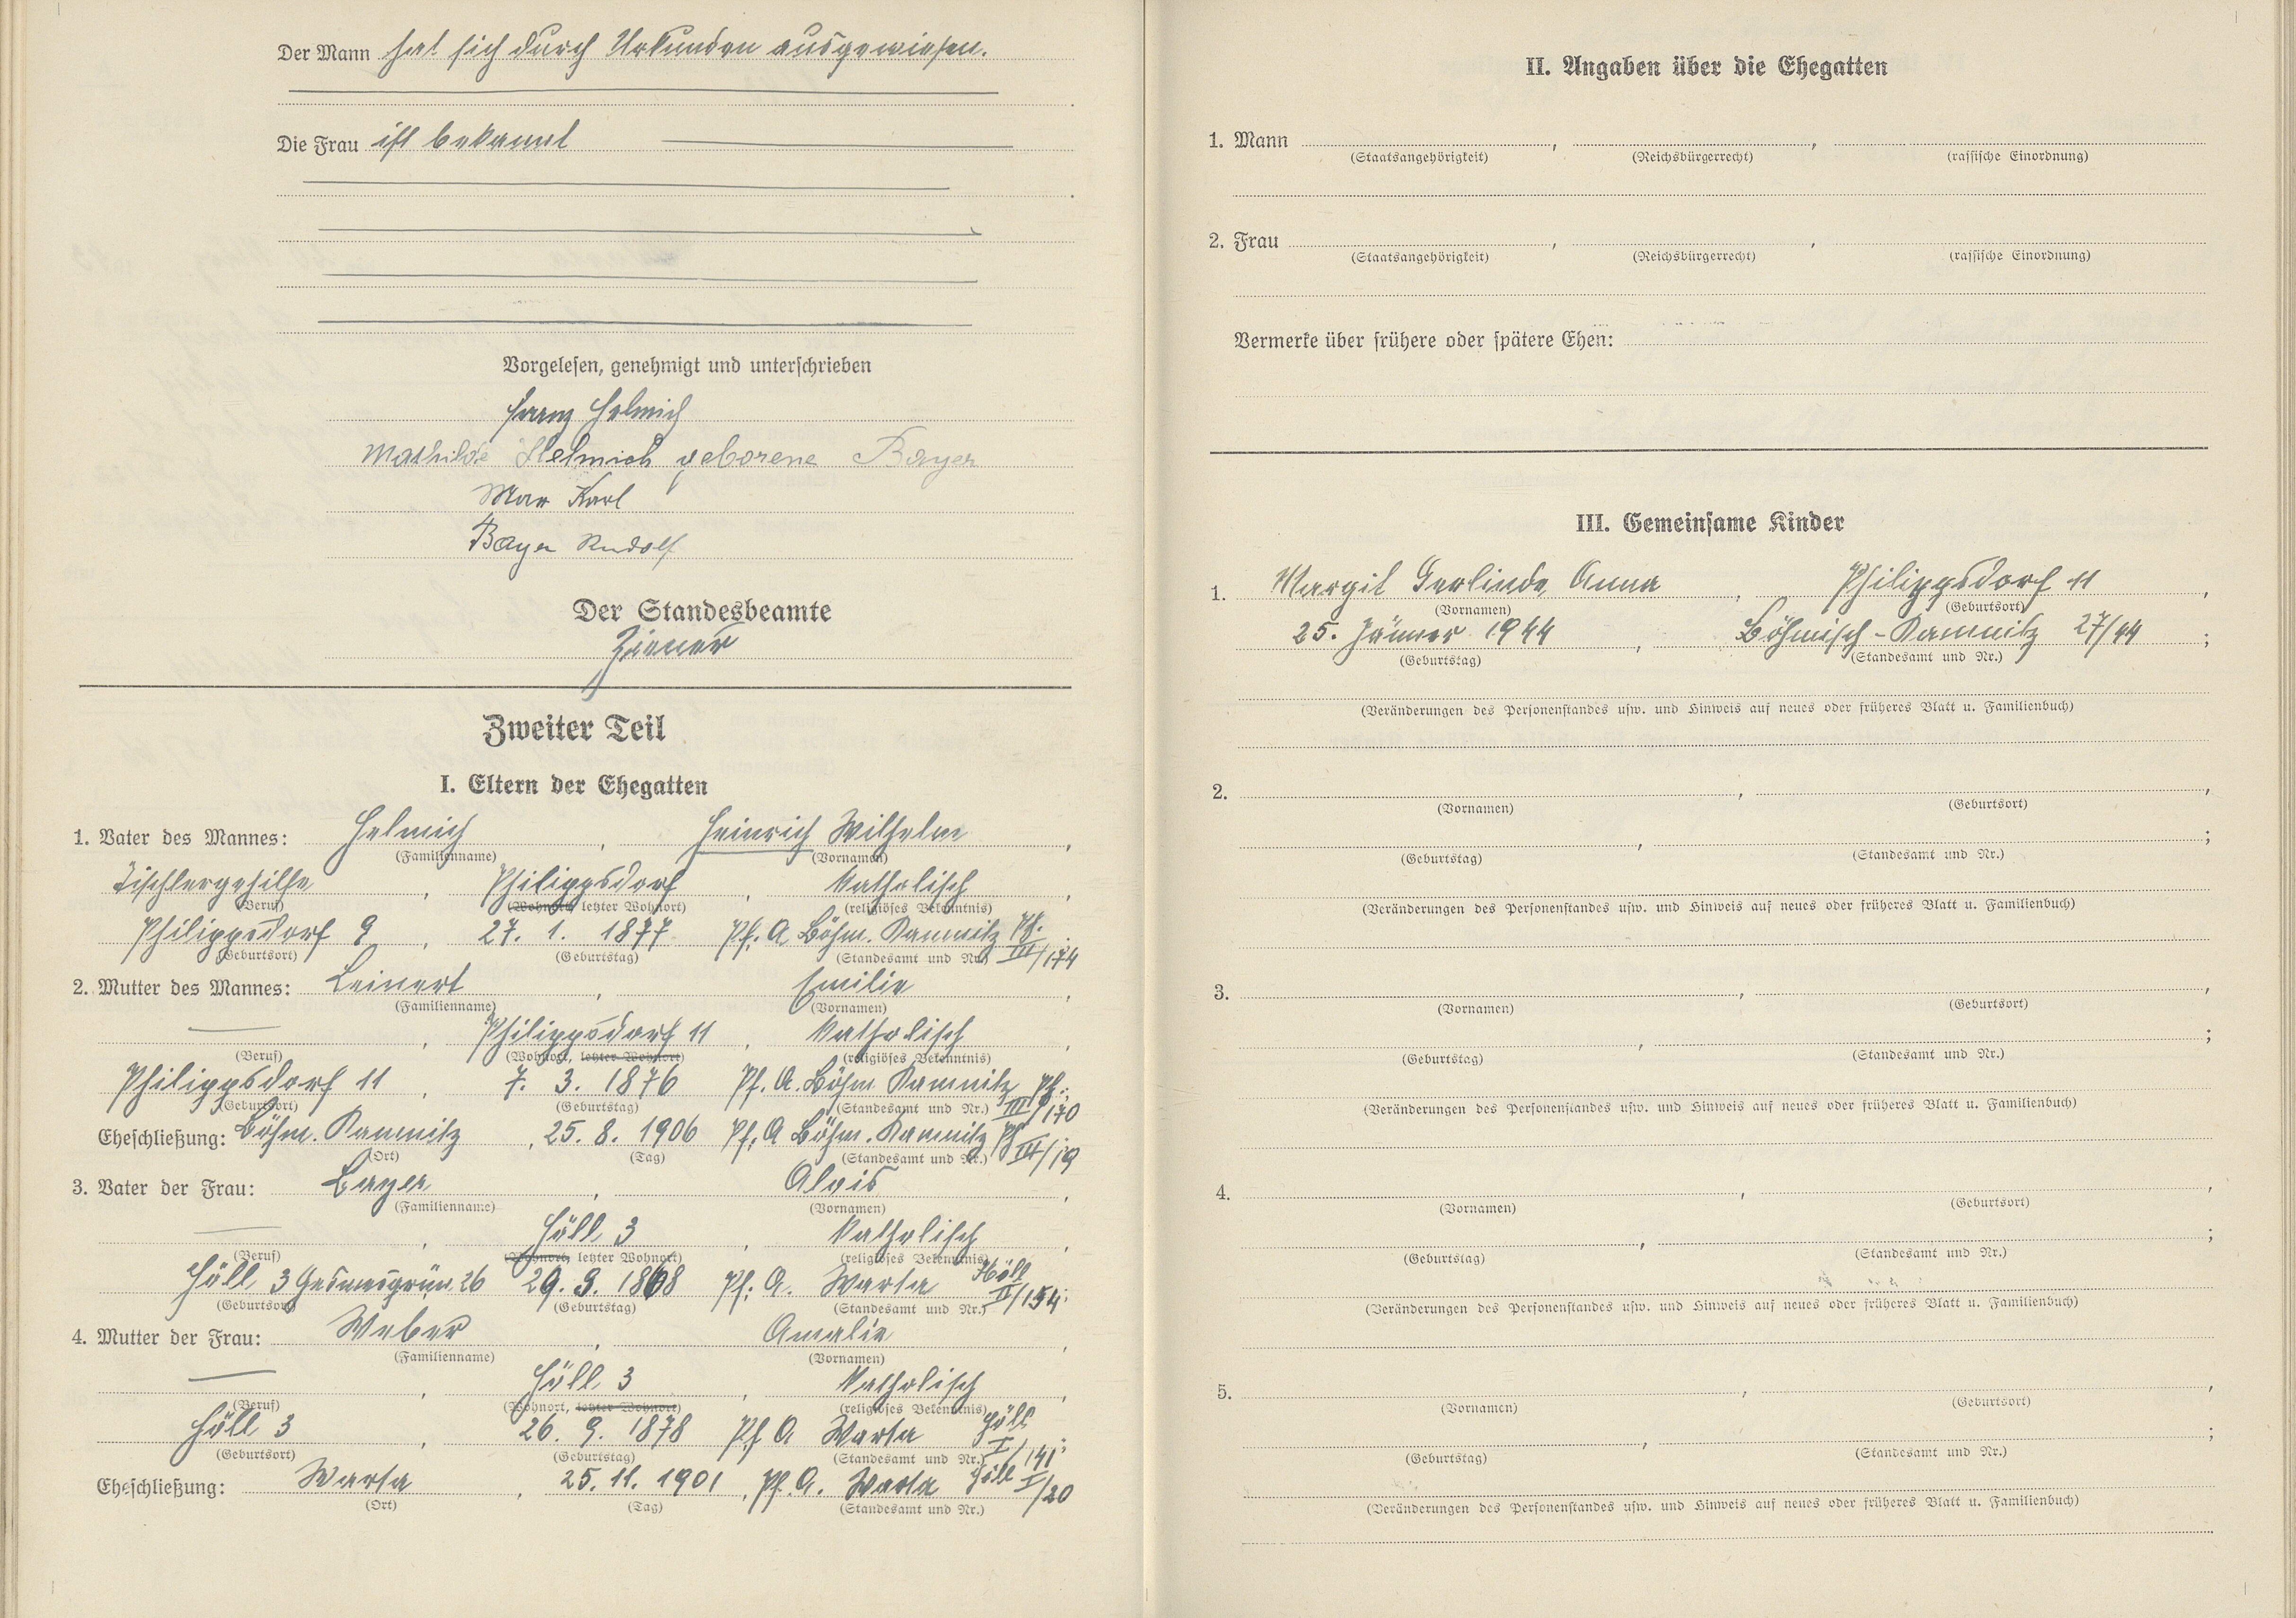 Der Mann hat sich durch Urkunden ausgewiesen.
Die Frau ist bekannt
Vorgelesen, genehmigt und unterschrieben
Franz Helmich
Mathilde Helmich geborene Bayer
Karl
Bayer Rudolf
Der Standesbeamte
Zweiter Teil
I. Eltern der Ehegatten
1. Vater des Mannes: Helmich, Heinrich Wilhelm,
(Familienname) (Vornamen)
Tischlergehilfe, Philippsdorf, katholisch,
(Beruf) (Wohnort, letzter Wohnort) (religiöses Bekenntnis)
Philippsdorf 9, 27. 1. 1877 Pf. A Böhm. Kamnitz Ph. III/174
(Geburtsort) (Geburtstag) (Standesamt und Nr.)
2. Mutter des Mannes: Leinert, Emilie,
(Familienname) (Vornamen)
—, Philippsdorf 11, katholisch,
(Beruf) (Wohnort, letzter Wohnort) (religiöses Bekenntnis)
Philippsdorf 11, 7. 3. 1876 Pf. A. Böhm. Kamnitz Ph. III/170
(Geburtsort) (Geburtstag) (Standesamt und Nr.)
Eheschließung: Böhm. Kamnitz, 25. 8. 1906 Pf. A Böhm. Kamnitz Ph III/19
(Ort) (Tag) (Standesamt und Nr.)
3. Vater der Frau: Bayer, Alois,
(Familienname) (Vornamen)
—, Höll 3, katholisch,
(Beruf) (Wohnort, letzter Wohnort) (religiöses Bekenntnis)
Höll 3 Gesmesgrün 26 29. 9. 1868 Pf. A. Warta Höll II/154;
(Geburtsort) (Geburtstag) (Standesamt und Nr.)
4. Mutter der Frau: Weber, Amalie,
(Familienname) (Vornamen)
—, Höll 3, katholisch,
(Beruf) (Wohnort, letzter Wohnort) (religiöses Bekenntnis)
Höll 3, 26. 9. 1878 Pf A Warta Höll I/141;
(Geburtsort) (Geburtstag) (Standesamt und Nr.)
Eheschließung: Warta, 25. 11. 1901, Pf. A. Warta Höll I/20
(Ort) (Tag) (Standesamt und Nr.)
II. Angaben über die Ehegatten
1. Mann , ,
(Staatsangehörigkeit) (Reichsbürgerrecht) (rassische Einordnung)
2. Frau , ,
(Staatsangehörigkeit) (Reichsbürgerrecht) (rassische Einordnung)
Vermerke über frühere oder spätere Ehen:
III. Gemeinsame Kinder
1. Margit Gerlinde Anna, Philippsdorf 11,
(Vornamen) (Geburtsort)
25. Jänner 1944, Böhmisch-Kamnitz 27/44;
(Geburtstag) (Standesamt und Nr.)
(Veränderungen des Personenstandes usw. und Hinweis auf neues oder früheres Blatt u. Familienbuch)
2. , ,
(Vornamen) (Geburtsort)
, ;
(Geburtstag) (Standesamt und Nr.)
(Veränderungen des Personenstandes usw. und Hinweis auf neues oder früheres Blatt u. Familienbuch)
3. , ,
(Vornamen) (Geburtsort)
, ;
(Geburtstag) (Standesamt und Nr.)
(Veränderungen des Personenstandes usw. und Hinweis auf neues oder früheres Blatt u. Familienbuch)
4. , ,
(Vornamen) (Geburtsort)
, ;
(Geburtstag) (Standesamt und Nr.)
(Veränderungen des Personenstandes usw. und Hinweis auf neues oder früheres Blatt u. Familienbuch)
5. , ,
(Vornamen) (Geburtsort)
, ;
(Geburtstag) (Standesamt und Nr.)
(Veränderungen des Personenstandes usw. und Hinweis auf neues oder früheres Blatt u. Familienbuch)